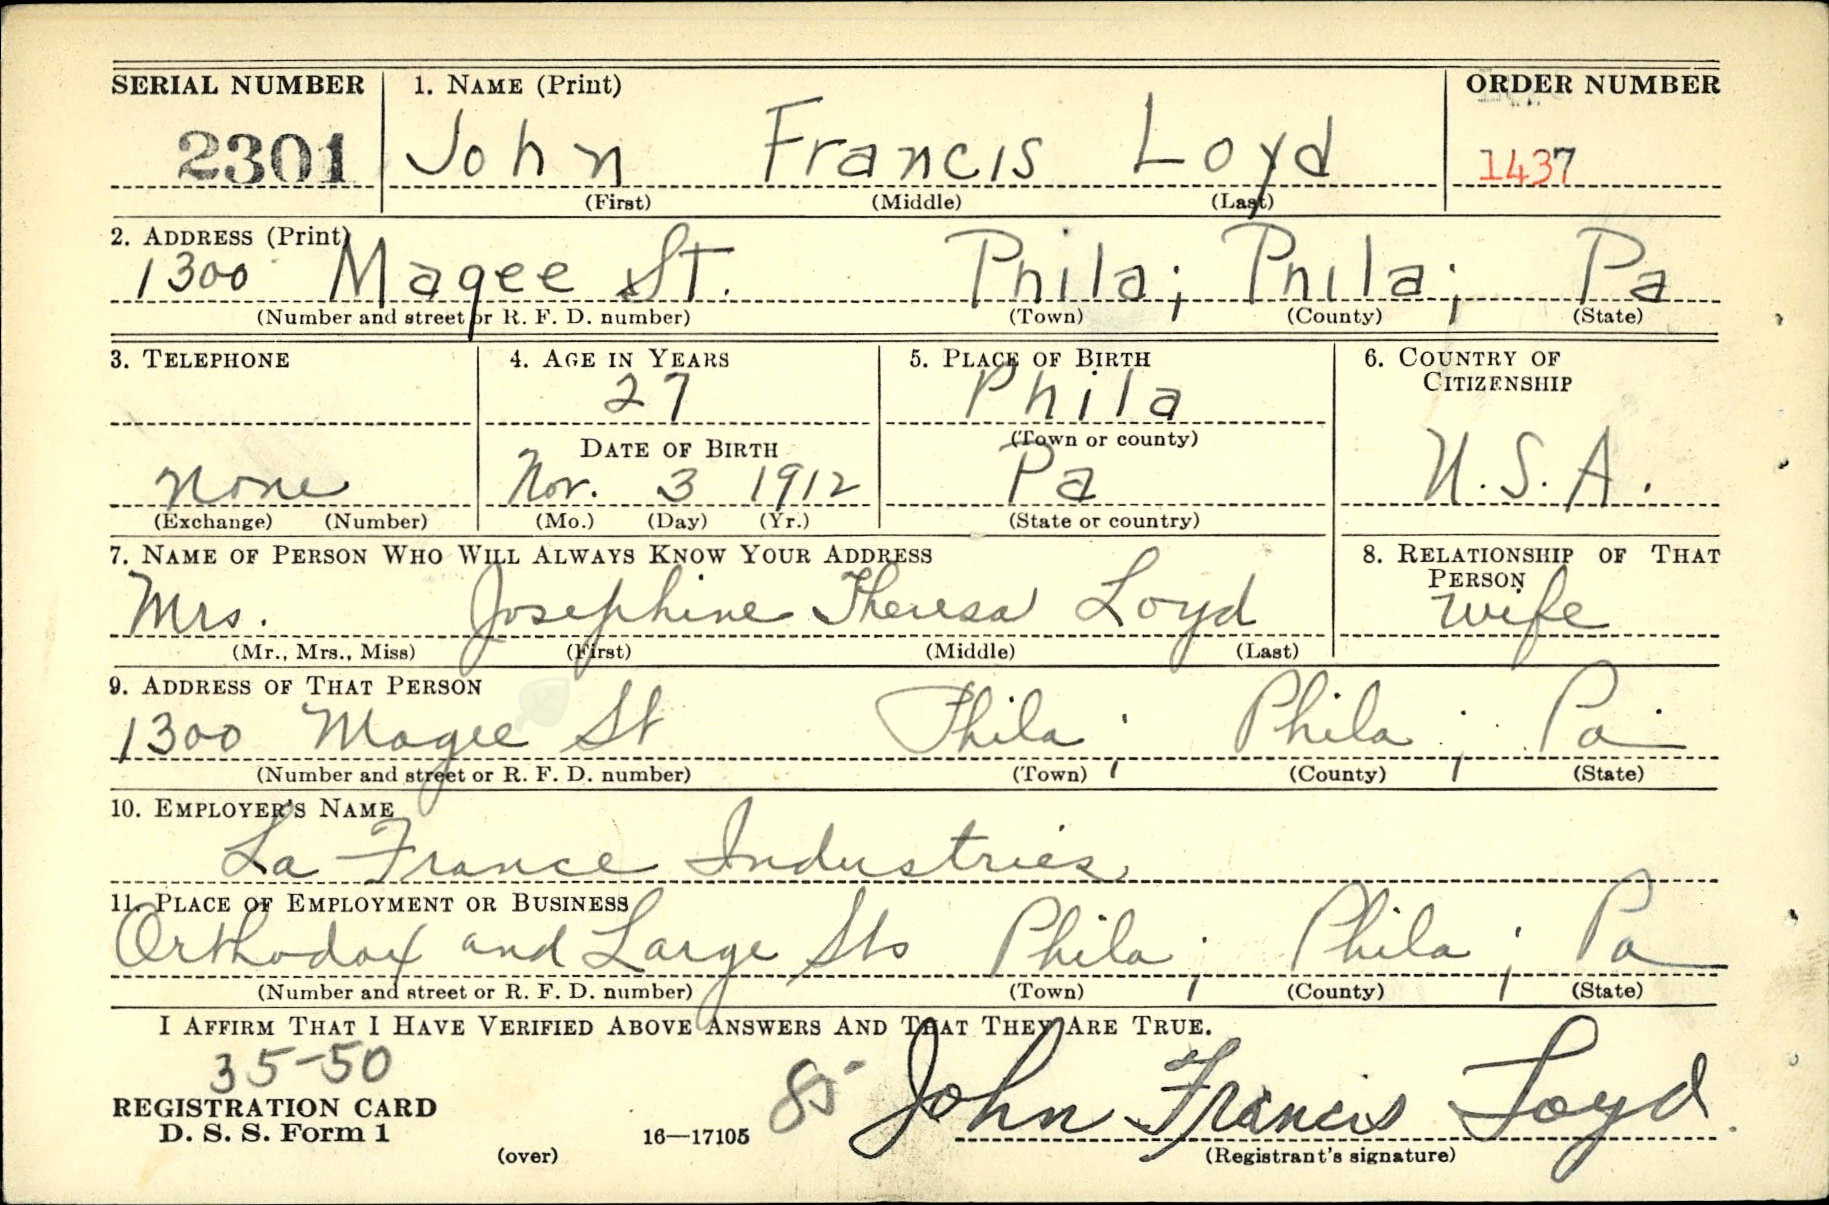 SERIAL NUMBER 1. NAME (Print) ORDER NUMBER
2301 John Francis Loyd 1437
(First) (Middle) (Last)
2. ADDRESS (Print)
1300 Magee St. Phila; Phila; Pa
(Number and street or R. F. D. number) (Town) (County) (State)
3. TELEPHONE 4. AGE IN YEARS 5. PLACE OF BIRTH 6. COUNTRY OF
CITIZENSHIP
27 Phila
DATE OF BIRTH (Town or county)
None Nov. 3 1912 Pa U.S.A.
(Exchange) (Number) (Mo.) (Day) (Yr.) (State or country)
7. NAME OF PERSON WHO WILL ALWAYS KNOW YOUR ADDRESS 8. RELATIONSHIP OF THAT
PERSON
Mrs. Josephine Theresa Loyd wife
(Mr., Mrs., Miss) (First) (Middle) (Last)
9. ADDRESS OF THAT PERSON
1300 Magee St Phila; Phila; Pa
(Number and street or R. F. D. number) (Town) (County) (State)
10. EMPLOYER'S NAME
La France Industries
11. PLACE OF EMPLOYMENT OR BUSINESS
Orthodox and Large Sts Phila; Phila; Pa
(Number and street or R. F. D. number) (Town) (County) (State)
I AFFIRM THAT I HAVE VERIFIED ABOVE ANSWERS AND THAT THEY ARE TRUE.
35-50
REGISTRATION CARD John Francis Loyd
D. S. S. Form 1 16—17105
(over) (Registrant's signature)